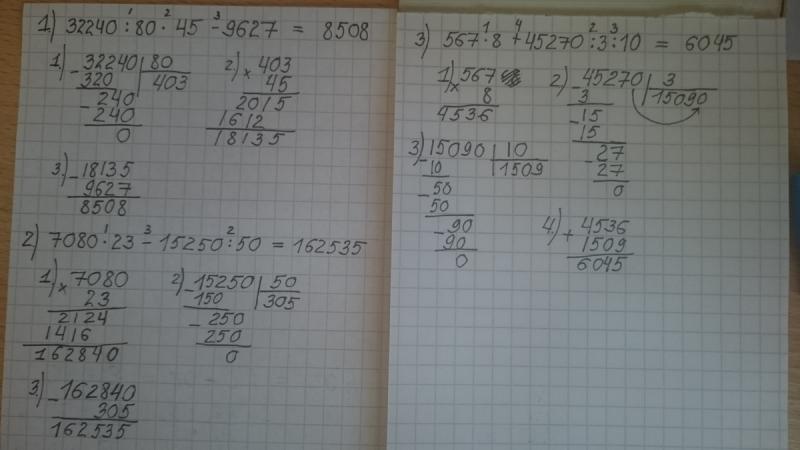 1.) 32240 : 80 · 45 - 9627 = 8508
1.) - 32240 | 80
320 403
- 240
240
0
2.) × 403
45
2015
1612
18135
3.) - 18135
9627
8508
2.) 7080 · 23 - 15250 : 50 = 162535
1.) × 7080
23
2124
1416
162840
2.) - 15250 | 50
150 305
- 250
250
0
3.) - 162840
305
162535
3.) 567 · 8 + 45270 : 3 : 10 = 6045
1.) × 567
8
4536
2.) - 45270 | 3
3 15090
- 15
15
- 27
27
0
3.) - 15090 | 10
10 1509
- 50
50
- 90
90
0
4.) + 4536
1509
6045